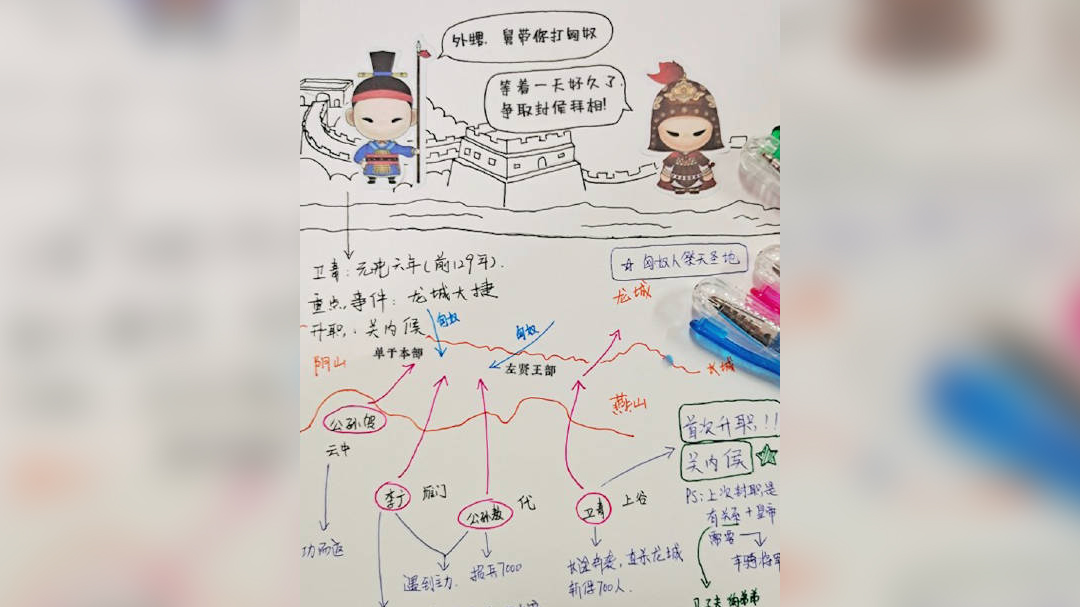 外甥，舅带你打匈奴
等着一天好久了，
争取封侯拜相!
卫青:元光六年(前129年).
重点事件:龙城大捷
升职:关内侯
☆ 匈奴人祭天圣地
龙城
匈奴
匈奴
单于本部
左贤王部
阴山
长城
燕山
公孙贺
云中
首次升职!!
关内侯
李广
雁门
公孙敖
代
卫青
上谷
PS:上次封职是
有关系+皇帝
需要
车骑将军
遇到主力.
损兵7000
长途奔袭，直杀龙城
斩俘700人.